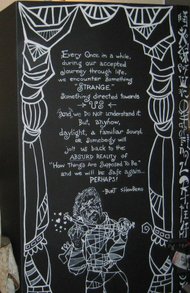 Every Once in a while,
during our accepted
journey through life,
we encounter something
STRANGE.
Something directed towards
US
and we DO NOT understand it
But, anyhow,
daylight, a familiar sound
or somebody will
jolt us back to the
ABSURD REALITY of
"How Things are Supposed To Be"
and we will be Safe again...
PERHAPS!